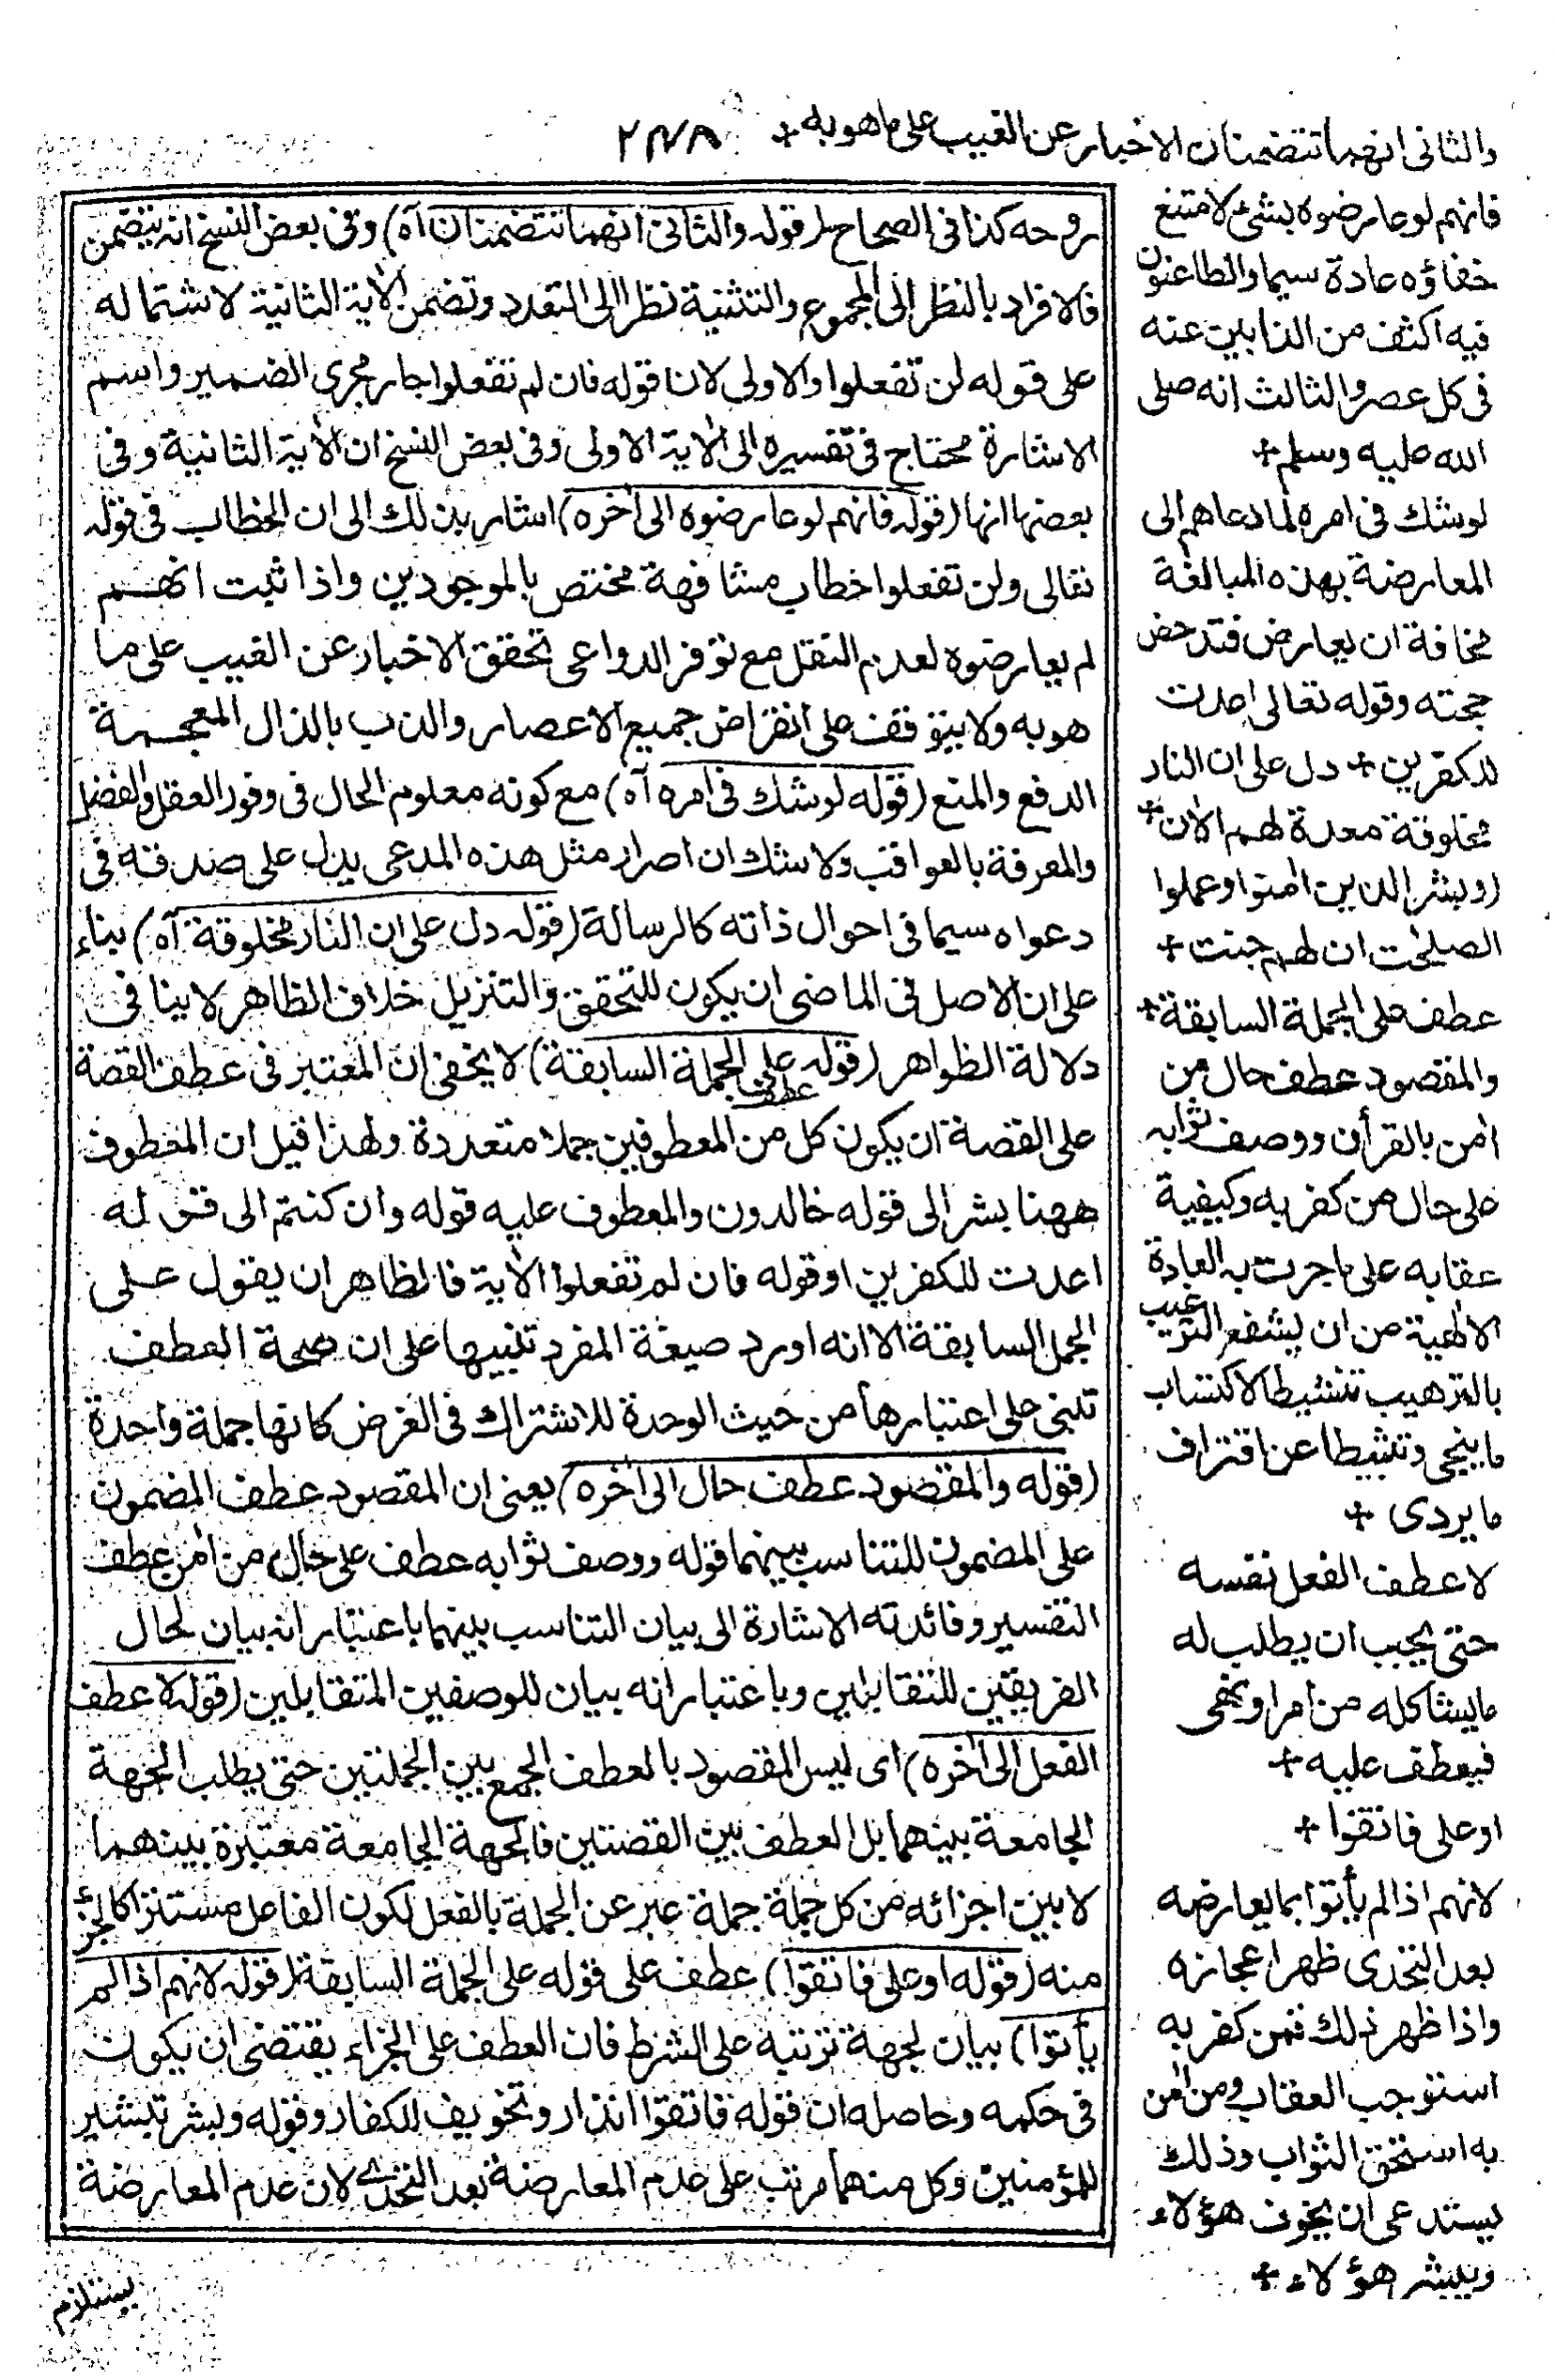 والثانى انهما تتضمنان الاخبار عن الغيب على ما هو به +
٢٤٨
فانهم لو عارضوه بشئ لامتنع
خفاؤه عادة سيما والطاعنون
فيه اكثف من الذابين عنه
فى كل عصر والثالث انه صلى
الله عليه وسلم +
لو شك فى امره لما دعاهم الى
المعارضة بهذه المبالغة
مخافة ان يعارض فتدحض
حجته وقوله تعالى اعدت
للكفرين + دل على ان النار
مخلوقة معدة لهم الأن +
(وبشر الذين امنوا وعملوا
الصلحت ان لهم جنت +
عطف على الجملة السابقة +
والمقصود عطف حال من
أمن بالقرأن ووصف ثوابه
على حال من كفر به وكيفية
عقابه على ما جرت به العادة
الالهية من ان يشفع الترغيب
بالترهيب تنشيطا لاكتساب
ما ينجى وتثبيطا عن اقتراف
ما يردى +
لا عطف الفعل نفسه
حتى يجب ان يطلب له
ما يشاكله من امر او نهى
فيعطف عليه +
او على فاتقوا +
لانهم اذا لم يأتوا بما يعارضه
بعد التحدى ظهر اعجازه
واذا ظهر ذلك فمن كفر به
استوجب العقاب ومن أمن
به استحق الثواب وذلك
يستدعى ان يخوف هؤلاء
ويبشر هؤلاء +
روحه كذا فى الصحاح (قوله والثانى انهما تتضمنان آه) وفى بعض النسخ انه يتضمن
فالافراد بالنظر الى المجموع والتثنية نظرا الى التعدد وتضمن الأية الثانية لاشتماله
على قوله لن تفعلوا والاولى لان قوله فان لم تفعلوا جار مجرى الضمير واسم
الاشارة محتاج فى تفسيره الى الأية الاولى وفى بعض النسخ ان الأية الثانية وفى
بعضها انها (قوله فانهم لو عارضوه الى أخره) اشار بذلك الى ان الخطاب فى قوله
تعالى ولن تفعلوا خطاب مشافهة مختص بالموجودين واذا ثبت انهم
لم يعارضوه لعدم النقل مع توفر الدواعى تحقق الاخبار عن الغيب على ما
هو به ولا يتوقف على انقراض جميع الاعصار والذب بالذال المعجمة
الدفع والمنع (قوله لو شك فى امره آه) مع كونه معلوم الحال فى وفور العقل والفضل
والمعرفة بالعواقب ولا شك ان اصرار مثل هذه المدعى يدل على صدقه فى
دعواه سيما فى احوال ذاته كالرسالة (قوله دل على ان النار مخلوقة آه) بناء
على ان الاصل فى الماضى ان يكون للتحقق والتنزيل خلاف الظاهر لا ينافى
دلالة الظواهر (قوله عطف على الجملة السابقة) لا يخفى ان المعتبر فى عطف القصة
على القصة ان يكون كل من المعطوفين جملا متعددة ولهذا قيل ان المعطوف
ههنا بشر الى قوله خالدون والمعطوف عليه قوله وان كنتم الى قوله
اعدت للكفرين او قوله فان لم تفعلوا الأية فالظاهر ان يقول على
الجمل السابقة الا انه اورد صيغة المفرد تنبيها على ان صحة العطف
تبنى على اعتبارها من حيث الوحدة للاشتراك فى الغرض كانها جملة واحدة
(قوله والمقصود عطف حال الى أخره) يعنى ان المقصود عطف المضمون
على المضمون للتناسب بينهما قوله ووصف ثوابه عطف على حال من أمن عطف
التفسير وفائدته الاشارة الى بيان التناسب بينهما باعتبار انه بيان لحال
الفريقين المتقابلين وباعتبار انه بيان للوصفين المتقابلين (قوله لا عطف
الفعل الى أخره) اى ليس المقصود بالعطف الجمع بين الجملتين حتى يطلب الجهة
الجامعة بينهما بل العطف بين القصتين فالجهة الجامعة معتبرة بينهما
لا بين اجزائه من كل جملة جملة عبر عن الجملة بالفعل لكون الفاعل مستترا كالجزء
منه (قوله او على فاتقوا) عطف على قوله على الجملة السابقة (قوله لانهم اذا لم
يأتوا) بيان لجهة ترتبه على الشرط فان العطف على الجزاء يقتضى ان يكون
فى حكمه وحاصله ان قوله فاتقوا انذار وتخويف للكفار وقوله وبشر تبشير
للمؤمنين وكل منهما مرتب على عدم المعارضة بعد التحدى لان عدم المعارضة
يستلزم